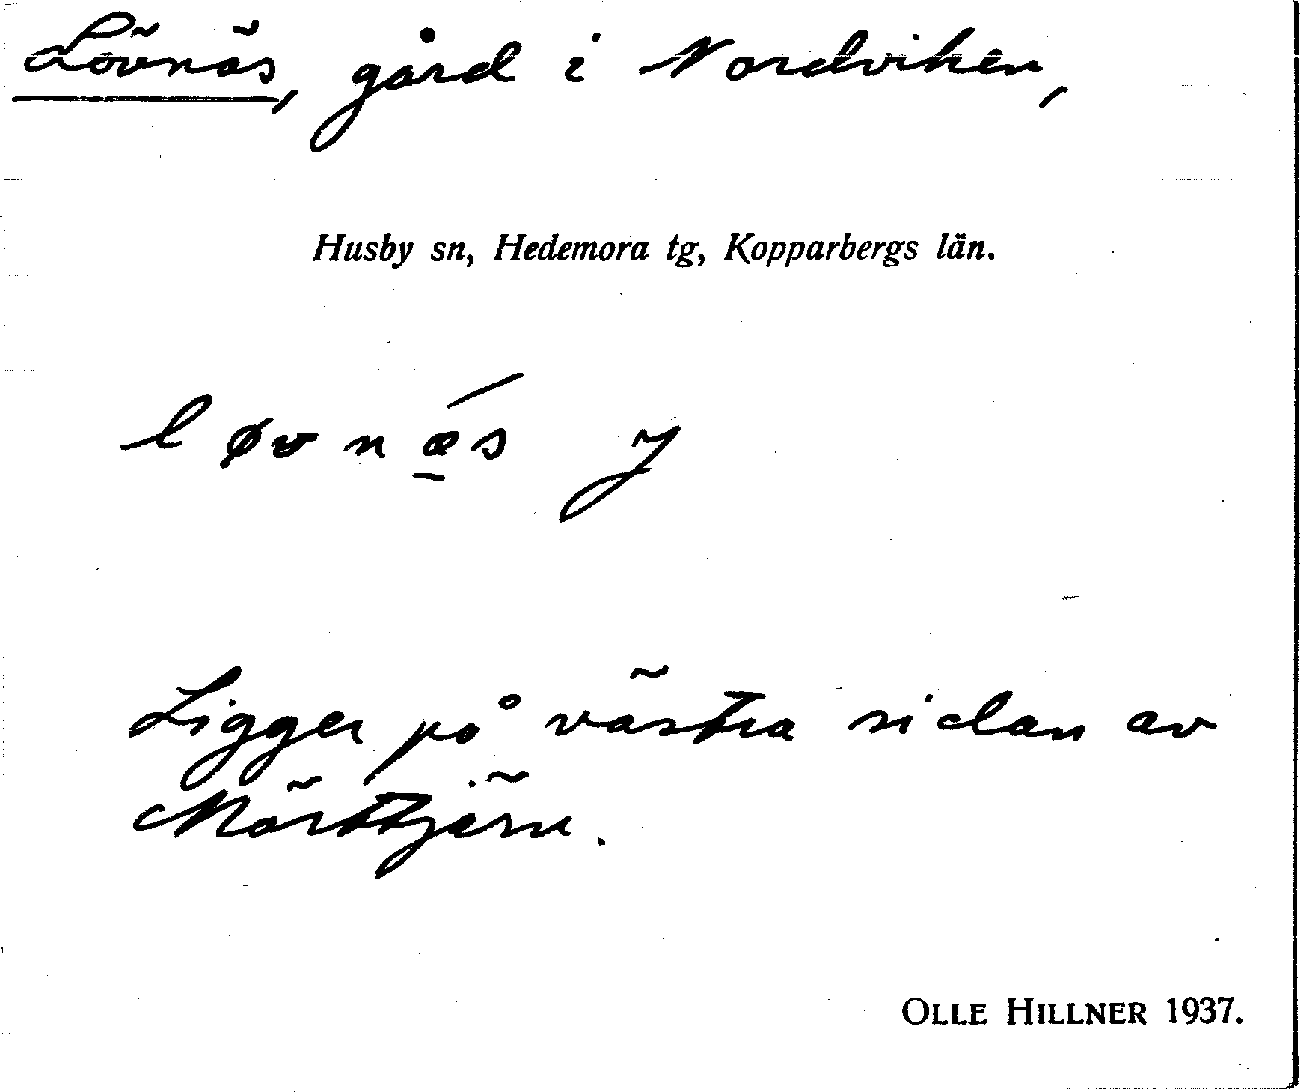 Lövnäs, gård i Nordviken,
Husby sn, Hedemora tg, Kopparbergs län.
løvnǽ̱s y
Ligger på västra sidan av
Mörttjärn.
OLLE HILLNER 1937.